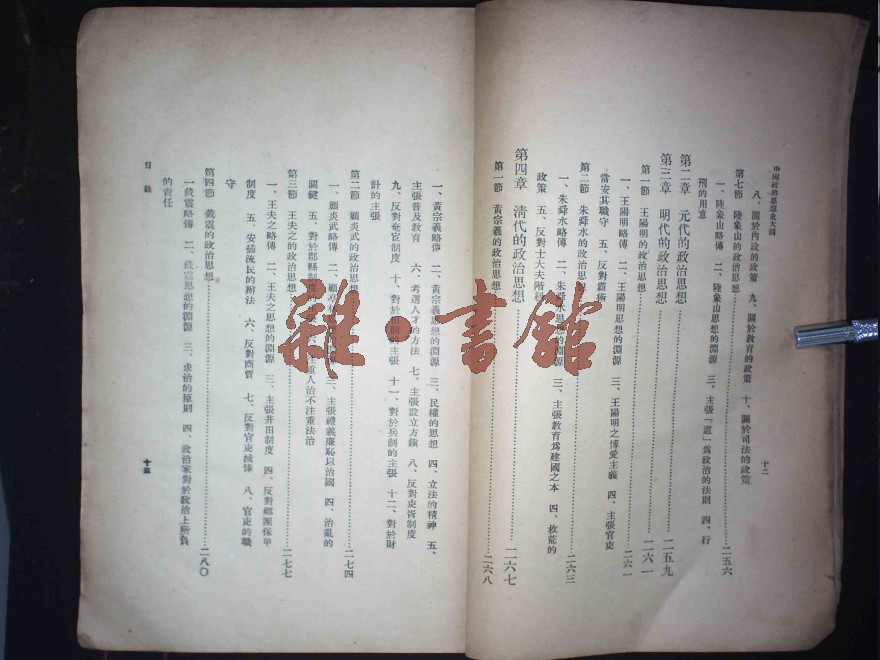 中國政治思想史大綱
十二
八、關於內政的政策 九、關於教育的政策 十、關於司法的政策
第七節 陸象山的政治思想 二五六
一、陸象山略傳 二、陸象山思想的淵源 三、主張「道」為政治的法則 四、行
刑的用意
第二章 元代的政治思想 二五九
第三章 明代的政治思想 二六一
第一節 王陽明的政治思想 二六一
一、王陽明略傳 二、王陽明思想的淵源 三、王陽明之博愛主義 四、主張官吏
當安其職守 五、反對霸術
第二節 朱舜水的政治思想 二六三
一、朱舜水略傳 二、朱舜水思想的淵源 三、主張教育為建國之本 四、救荒的
政策 五、反對士大夫階級
第四章 清代的政治思想 二六七
第一節 黃宗羲的政治思想 二六八
一、黃宗羲略傳 二、黃宗羲思想的淵源 三、民權的思想 四、立法的精神 五、
主張普及教育 六、考選人才的方法 七、主張設立方鎮 八、反對吏胥制度
九、反對奄宦制度 十、對於 制 主張 十一、對於兵制的主張 十二、對於財
計的主張
第二節 顧炎武的政治思想 二七四
一、顧炎武略傳 二、顧 三、主張禮義廉恥以治國 四、治亂的
關鍵 五、對於郡縣制度 重人治不注重法治
第三節 王夫之的政治思想 二七七
一、王夫之略傳 二、王夫之思想的淵源 三、主張井田制度 四、反對鄉團保甲
制度 五、安插流民的辦法 六、反對商賈 七、反對官吏 八、官吏的職
守
第四節 戴震的政治思想 二八〇
一、戴震略傳 二、戴震思想的淵源 三、求治的原則 四、政治家對於政治上所負
的責任
目錄
十三
雜·書館